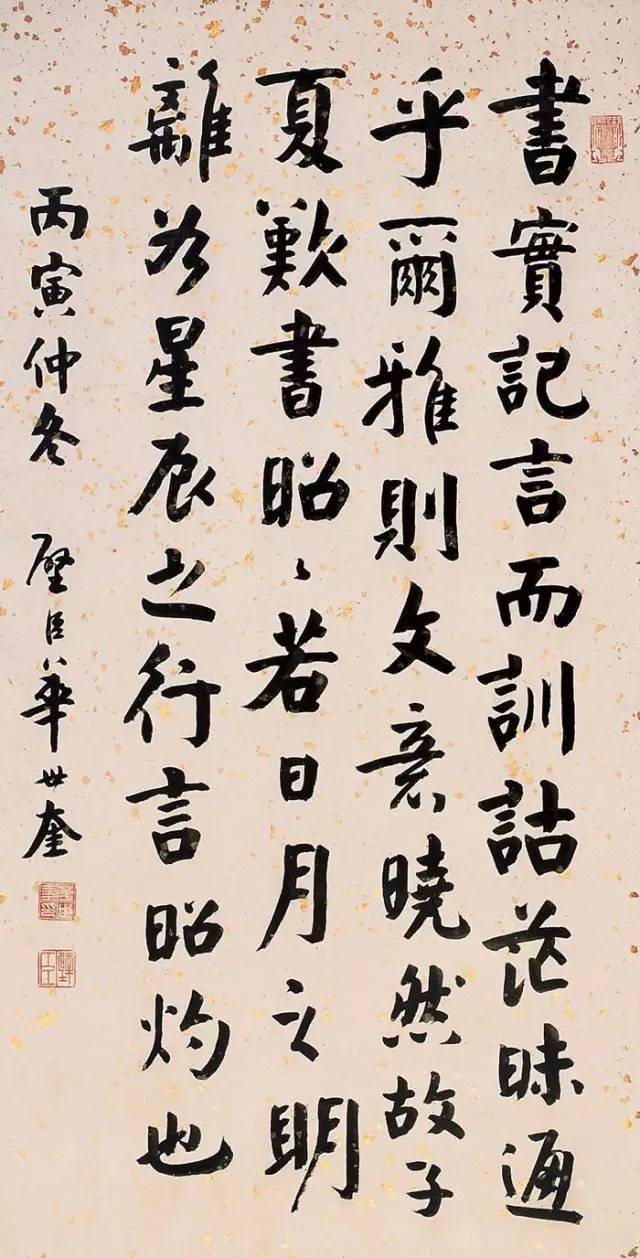 書實記言而訓詁茫昧通
乎爾雅則文意曉然故子
夏歎書昭〻若日月之明
離星辰之行言昭灼也
丙寅仲冬 璧臣華世奎